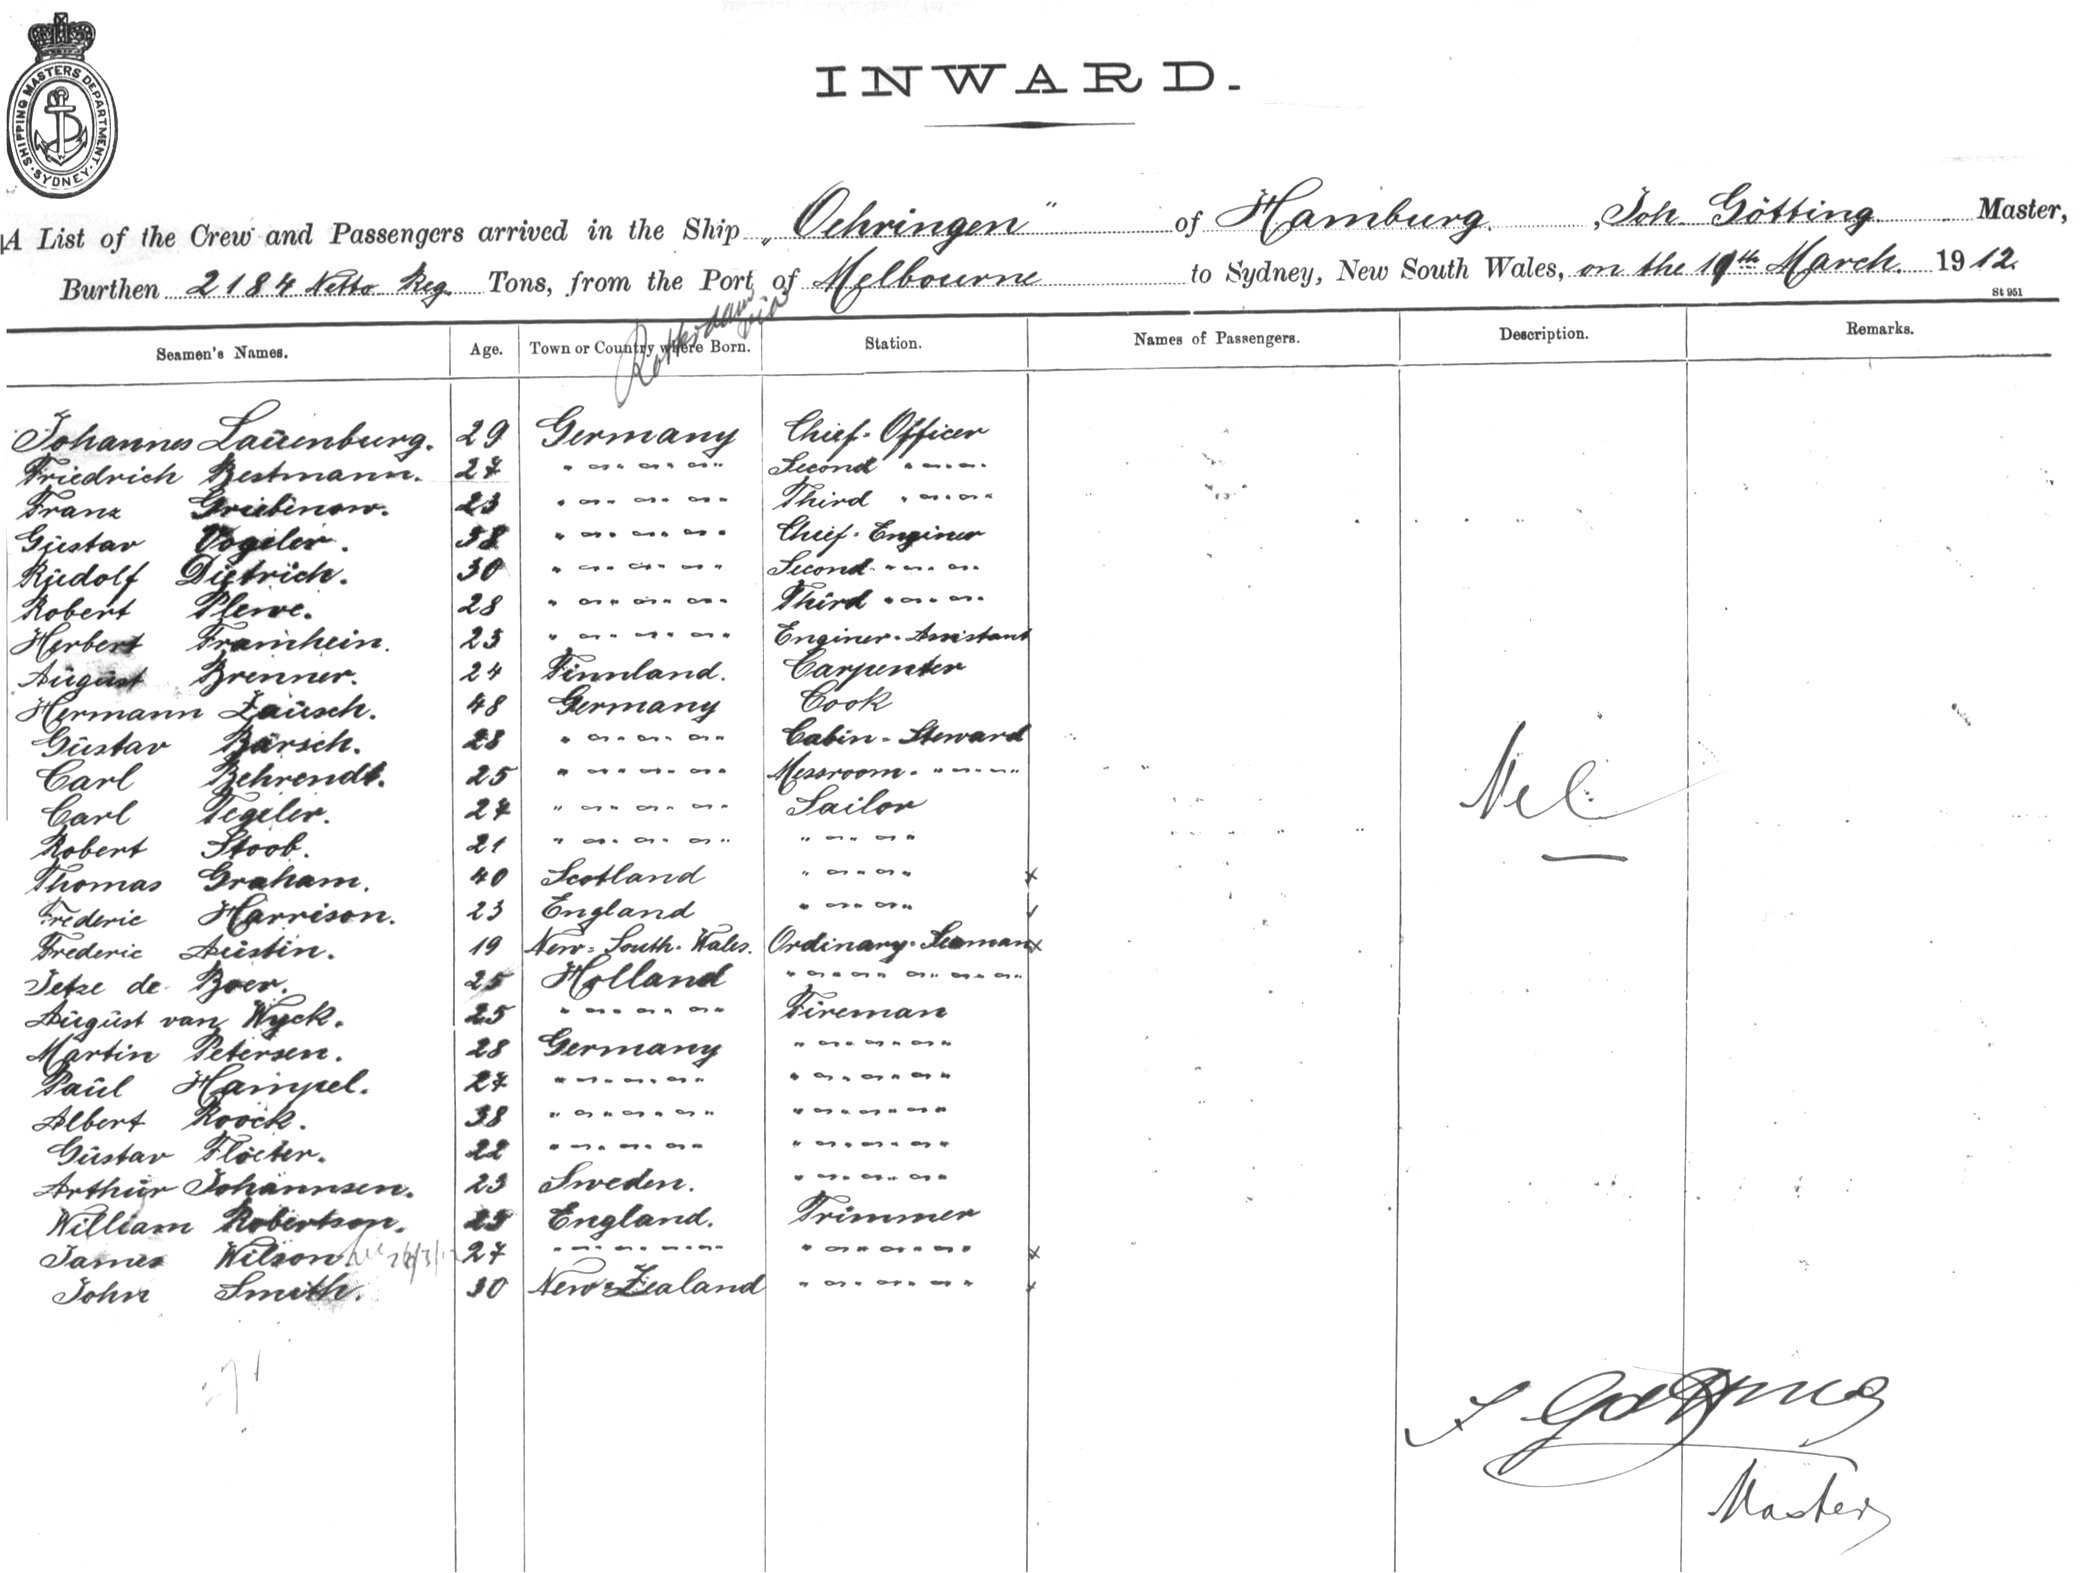 SHIPPING MASTERS DEPARTMENT. SYDNEY.
INWARD.
A List of the Crew and Passengers arrived in the Ship „Oehringen“ of Hamburg, Joh. Götting Master,
Burthen 2184 Netto Reg. Tons, from the Port of Melbourne to Sydney, New South Wales, on the 19th March 1912.
St 951
Rotterdam via
Seamen's Names. Age. Town or Country where Born. Station. Names of Passengers. Description. Remarks.
Johannes Lauenburg. 29 Germany Chief-Officer
Friedrich Bestmann. 27 " " " " Second " "
Franz Griebenow. 23 " " " " Third " "
Gustav Vogeler. 38 " " " " Chief-Enginer
Rudolf Dietrich. 30 " " " " Second " "
Robert Plewe. 28 " " " " Third " "
Herbert Framhein. 23 " " " " Enginer-Assistant
August Brenner. 24 Finnland. Carpenter
Hermann Zausch. 48 Germany Cook
Gustav Bärsch. 28 " " " " Cabin-Steward
Carl Behrendt. 25 " " " " Messroom- " "
Carl Tegeler. 27 " " " " Sailor
Robert Stoob. 21 " " " " " " "
Thomas Graham. 40 Scotland " " " x
Frederic Harrison. 23 England " " "
Frederic Austin. 19 New-South-Wales. Ordinary-Seaman x
Jetze de Boer. 25 Holland " " " " "
August van Wyck. 25 " " " " Fireman
Martin Petersen. 28 Germany " " " "
Paul Hampel. 27 " " " " " " "
Albert Roock. 38 " " " " " " "
Gustav Flöter. 22 " " " " " " "
Arthur Johannsen. 23 Sweden. " " " "
William Robertson. 23 England. Trimmer
James Wilson. 27 " " " " " " " x
John Smith. 30 New-Zealand " " " " x
Nil
J Götting
Master